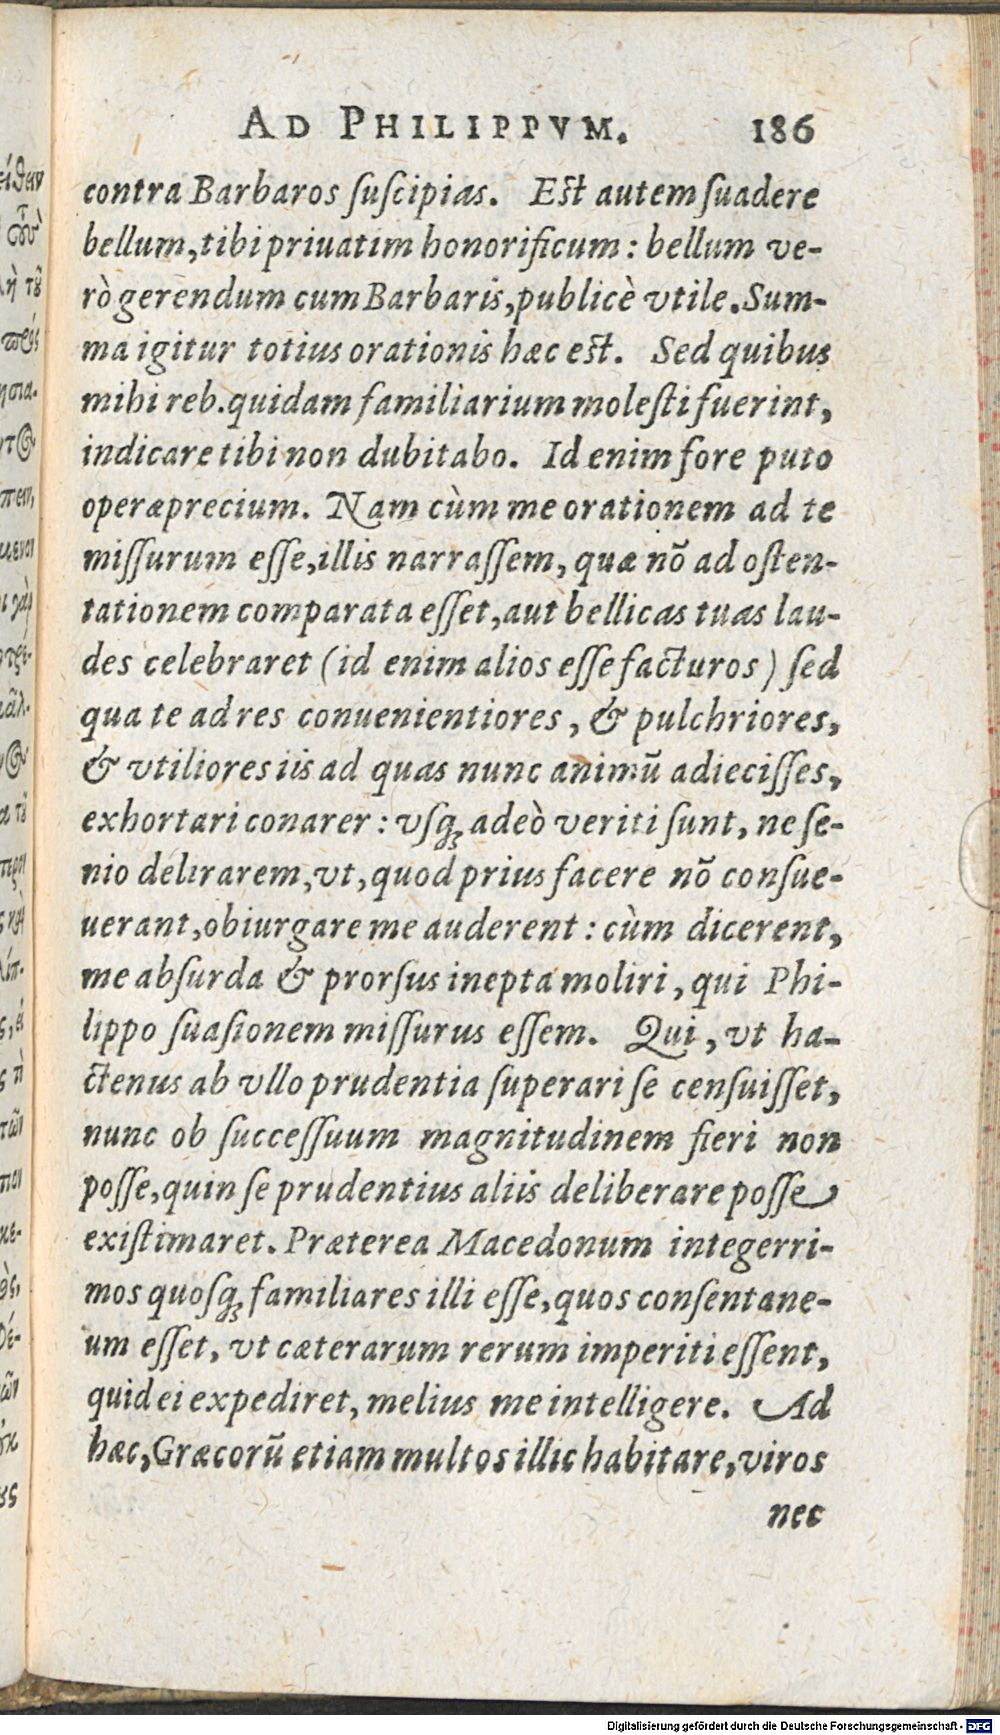 AD PHILIPPVM. 186
contra Barbaros ſuſcipias. Eſt autem ſuadere
bellum, tibi priuatim honorificum: bellum ve-
rò gerendum cum Barbaris, publicè vtile. Sum-
ma igitur totius orationis hæc eſt. Sed quibus
mihi reb. quidam familiarium moleſti fuerint,
indicare tibi non dubitabo. Id enim fore puto
operæprecium. Nam cùm me orationem ad te
miſſurum eſſe, illis narraſſem, quæ nõ ad oſten-
tationem comparata eſſet, aut bellicas tuas lau-
des celebraret (id enim alios eſſe facturos) ſed
qua te ad res conuenientiores, & pulchriores,
& vtiliores iis ad quas nunc animũ adieciſſes,
exhortari conarer: vſq; adeò veriti ſunt, ne ſe-
nio delirarem, vt, quod prius facere nõ conſue-
uerant, obiurgare me auderent: cùm dicerent,
me abſurda & prorſus inepta moliri, qui Phi-
lippo ſuaſionem miſſurus eſſem. Qui, vt ha-
ctenus ab vllo prudentia ſuperari ſe cenſuiſſet,
nunc ob ſucceſſuum magnitudinem fieri non
poſſe, quin ſe prudentius aliis deliberare poſſe
exiſtimaret. Præterea Macedonum integerri-
mos quoſq; familiares illi eſſe, quos conſentane-
um eſſet, vt cæterarum rerum imperiti eſſent,
quid ei expediret, melius me intelligere. Ad
hæc, Græcorũ etiam multos illic habitare, viros
nec
Digitalisierung gefördert durch die Deutsche Forschungsgemeinschaft - DFG